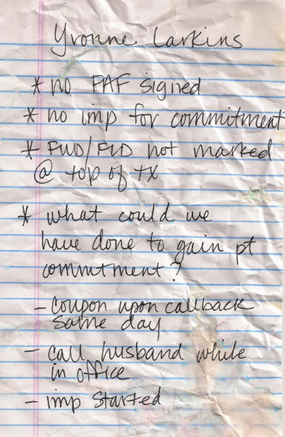 Yvonne Larkins
* no PAF signed
* no imp for commitment
* FWD/FLD not marked
@ top of tx
* what could we
have done to gain pt
commtment?
- coupon upon callback
same day
- call husband while
in office
- imp started